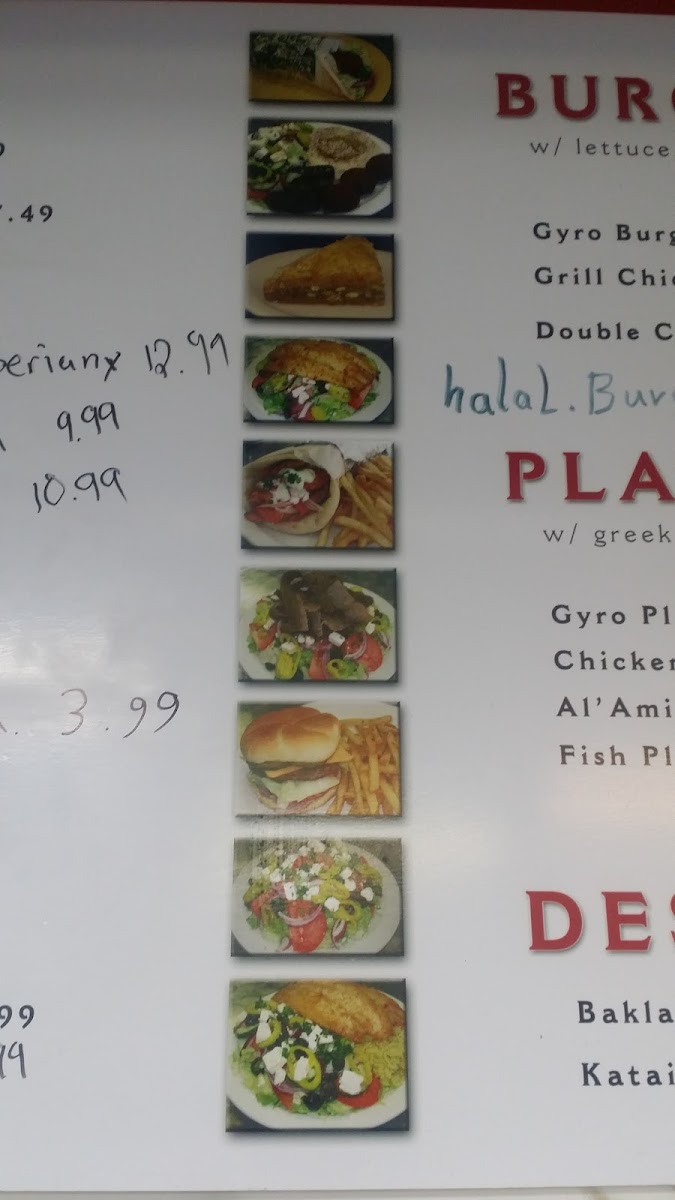 7.49
12.99
9.99
10.99
3.99
99
99
BUR
w/ lettuce
Gyro Burg
Grill Chi
Double C
halaL. Bur
PLA
w/ greek
Gyro Pl
Chicken
Al'Ami
Fish Pl
DES
Bakla
Katai